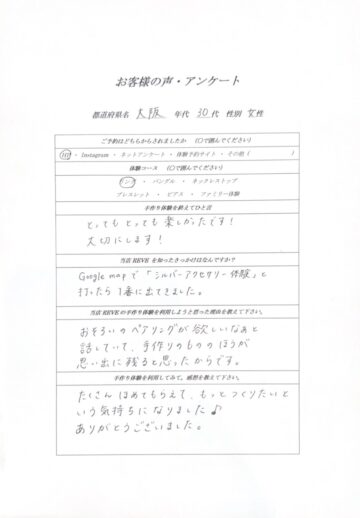 お客様の声・アンケート
都道府県名 大阪 年代 30代 性別 女性
ご予約はどちらからされましたか (○で囲んでください)
HP ・ Instagram ・ ネットアンケート ・ 体験予約サイト ・ その他 ( )
体験コース (○で囲んでください)
リング ・ バングル ・ ネックレストップ
ブレスレット ・ ピアス ・ ファミリー体験
手作り体験を終えてひと言
とってもとっても楽しかったです!
大切にします!
当店 REVE を知ったきっかけはなんですか?
Google mapで「シルバーアクセサリー体験」と
打ったら1番に出てきました。
当店 REVE の手作り体験を利用しようと思った理由を教えて下さい。
おそろいのペアリングが欲しいなぁと
話していて、手作りのもののほうが
思い出に残ると思ったからです。
手作り体験を利用してみて、感想を教えて下さい。
たくさんほめてもらえて、もっとつくりたいと
いう気持ちになりました♪
ありがとうございました。